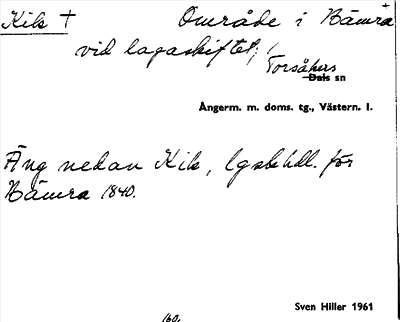 Kils † Område i Bämra
vid lagaskiftet; 
Torsåkers
Dals sn
Ångerm. m. doms. tg., Västern. l.
Äng nedan Kils, Lgskhdl. för
Bämra 1840.
Sven Hiller 1961
160.